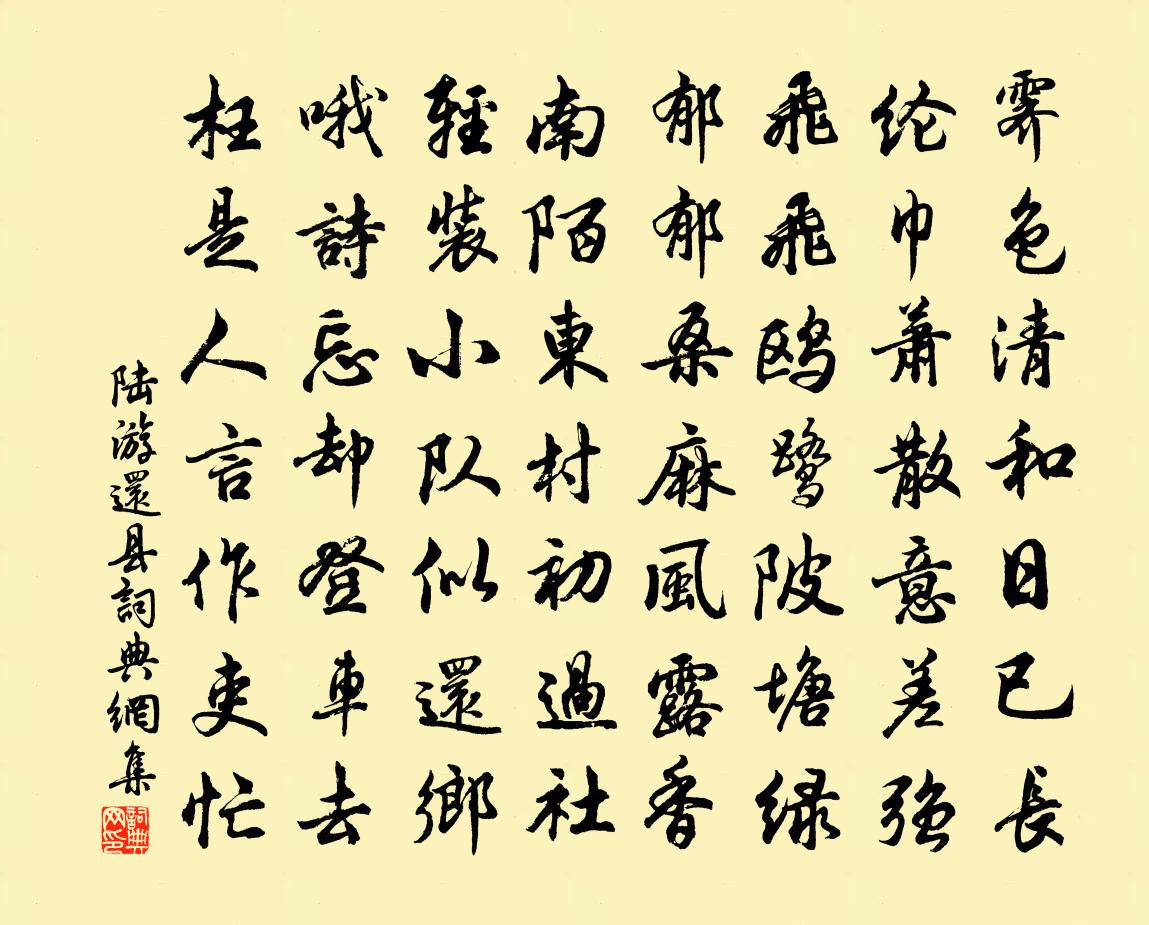 霽色清和日已長
纶巾萧散意差强
飛飛鸥鹭陂塘绿
郁郁桑麻風露香
南陌東村初過社
輕装小队似還鄉
哦詩忘却登車去
枉是人言作吏忙
陆游還县詞典網集
詞典网印